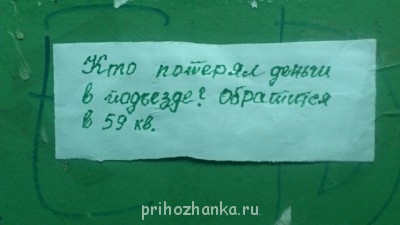 Кто потерял деньги
в подъезде? Обратится
в 59 кв.
prihozhanka.ru